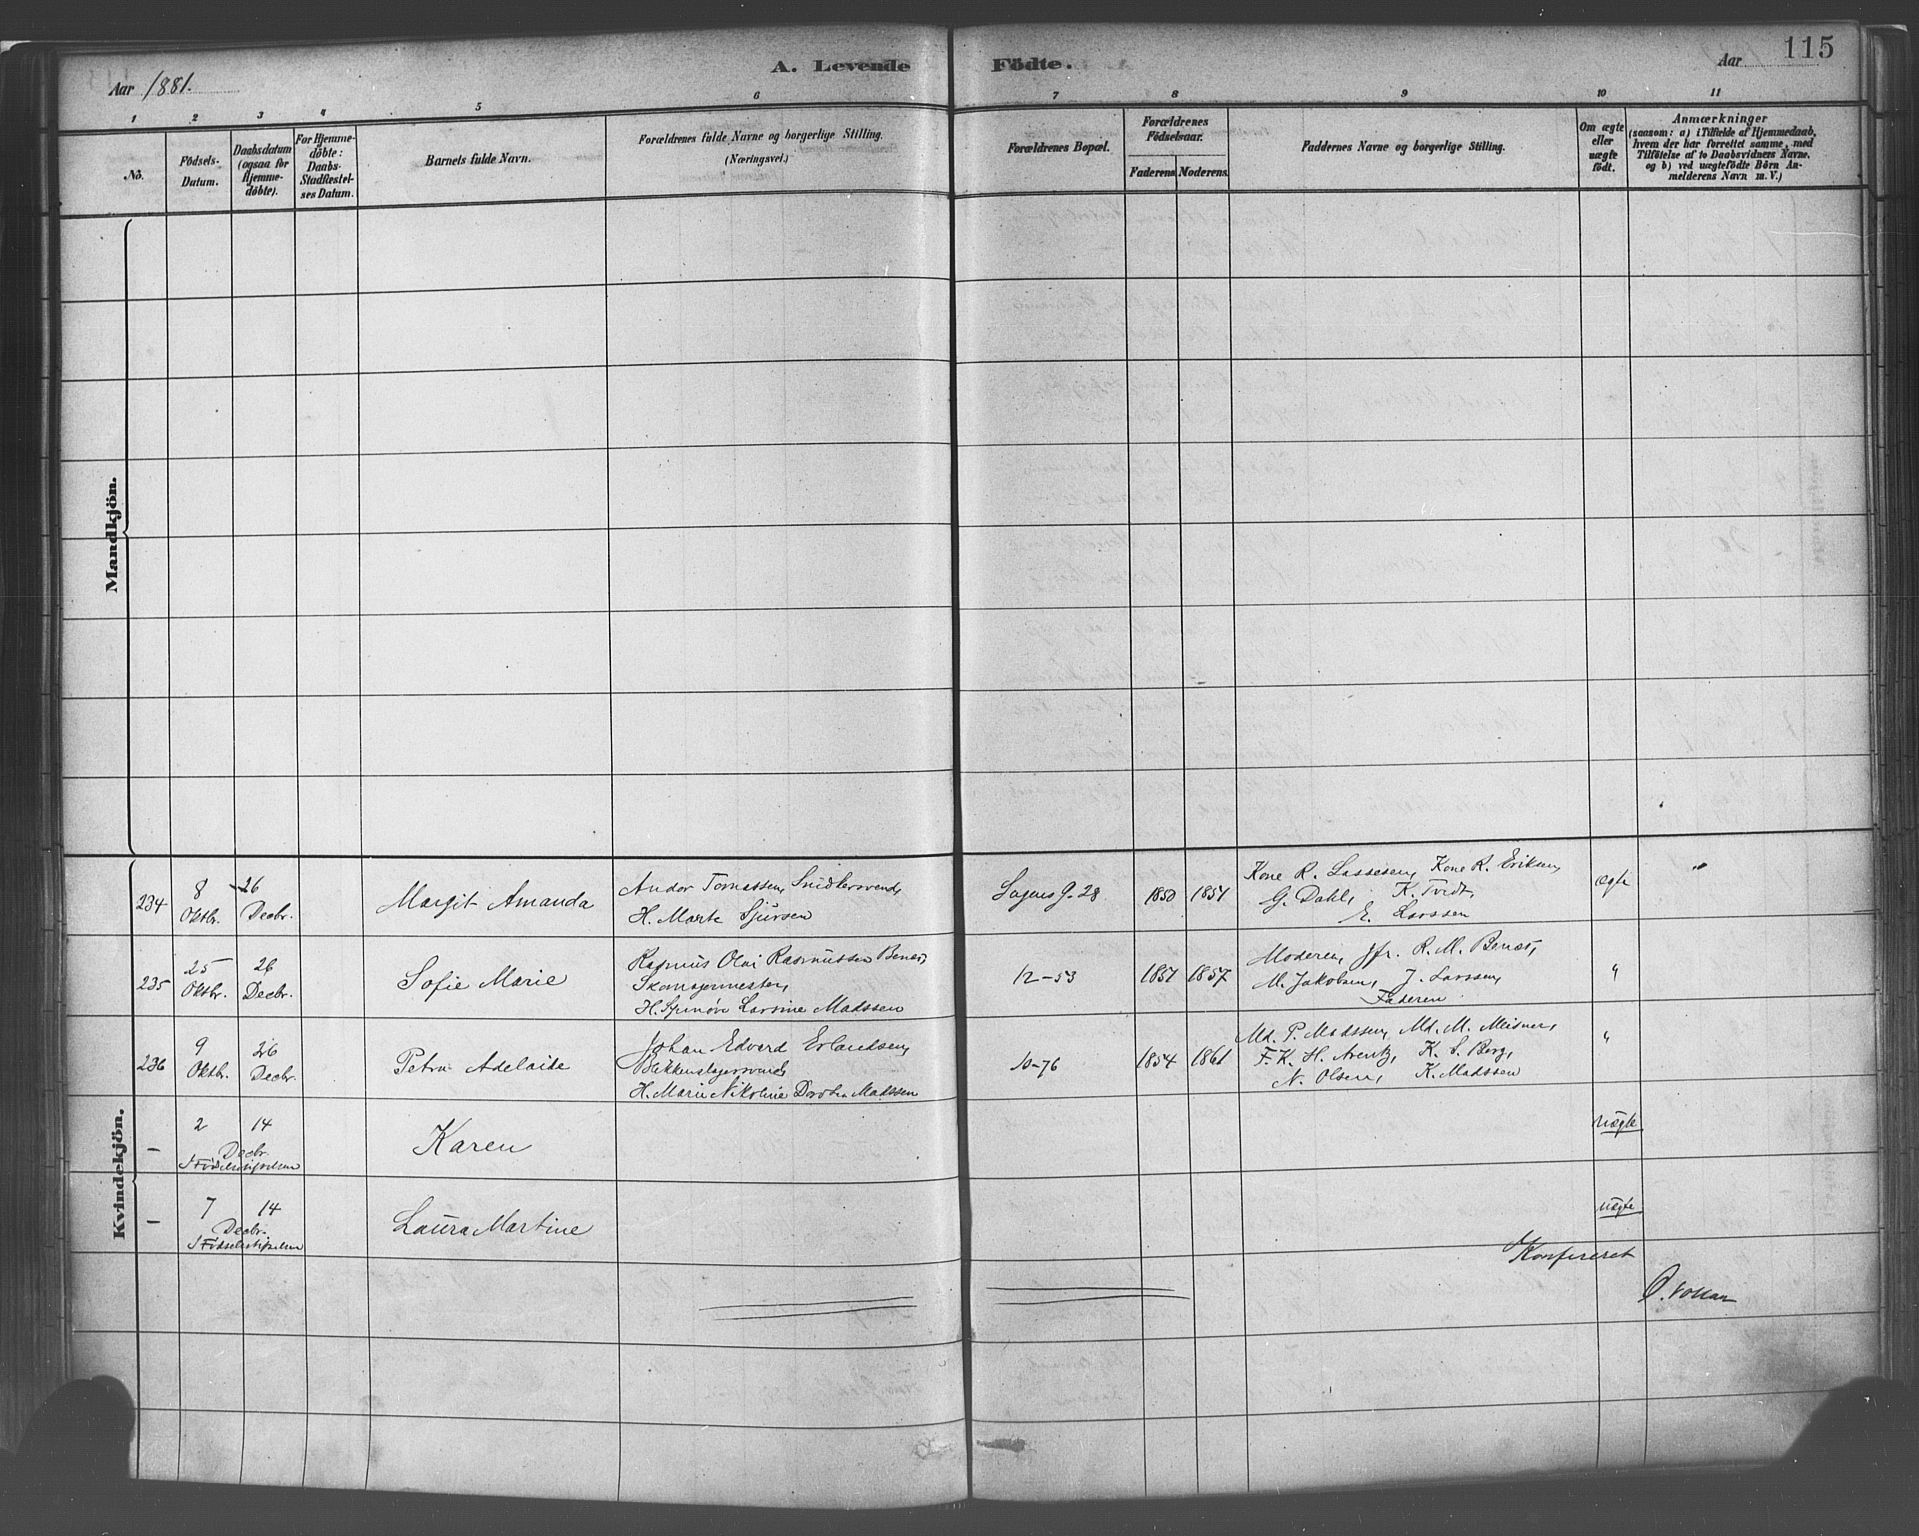 115
A. Levende Födte.
Aar 1881.
Aar
1 2 3 4 5 6 7 8 9 10 11
No.
Födsels-Datum.
Daabsdatum (ogsaa for Hjemme-döbte).
For Hjemme-döbte: Daabs-Stadfæstel-ses Datum.
Barnets fulde Navn.
Forældrenes fulde Navne og borgerlige Stilling.
(Næringsvei.)
Forældrenes Bopæl.
Forældrenes Födselsaar.
Faderens Moderens.
Faddernes Navne og borgerlige Stilling.
Om ægte eller uægte födt.
Anmærkninger
(saasom: a) i Tilfælde af Hjemmedaab, hvem der har forrettet samme, med Tilföielse af to Daabsvidners Navne, og b) ved uægtefödte Börn Anmelderens Navn m. V.)
Mandkjön.
Kvindekjön.
234 8 Oktbr. 26 Decbr. Margit Amanda
Andor Tomassen, Snidkersvend,
H. Marte Sjursen
9-28 1850 1851
Kone R. Lassesen, Kone R. Eriksen,
G. Dahl, K. Tvedt,
E. Larssen
ægte "
235 25 Oktbr. 26 Decbr. Sofie Marie
Rasmus Olai Rasmussen Benæs,
Skomagermester,
H. Synnöve Larsine Madssen
12-53 1851 1857
Moderen, Jfr. R. M. Benæs,
M. Jakobsen, J. Larssen,
Faderen
"
236 9 Oktbr. 26 Decbr. Petra Adelaide
Johan Edvard Erlandsen,
Blikkenslagersvend,
H. Marie Nikoline Dorothea Madssen
10-76 1854 1861
Md. P. Madssen, Md. M. Meisner,
F. K. H. Arentz, K. S. Berg,
N. Olsen, K. Madssen
"
- 2 14 Decbr. Karen uægte
I Födselsstiftelsen
- 7 14 Decbr. Laura Martine uægte
I Födselsstiftelsen
Konfereret
O. Vollan